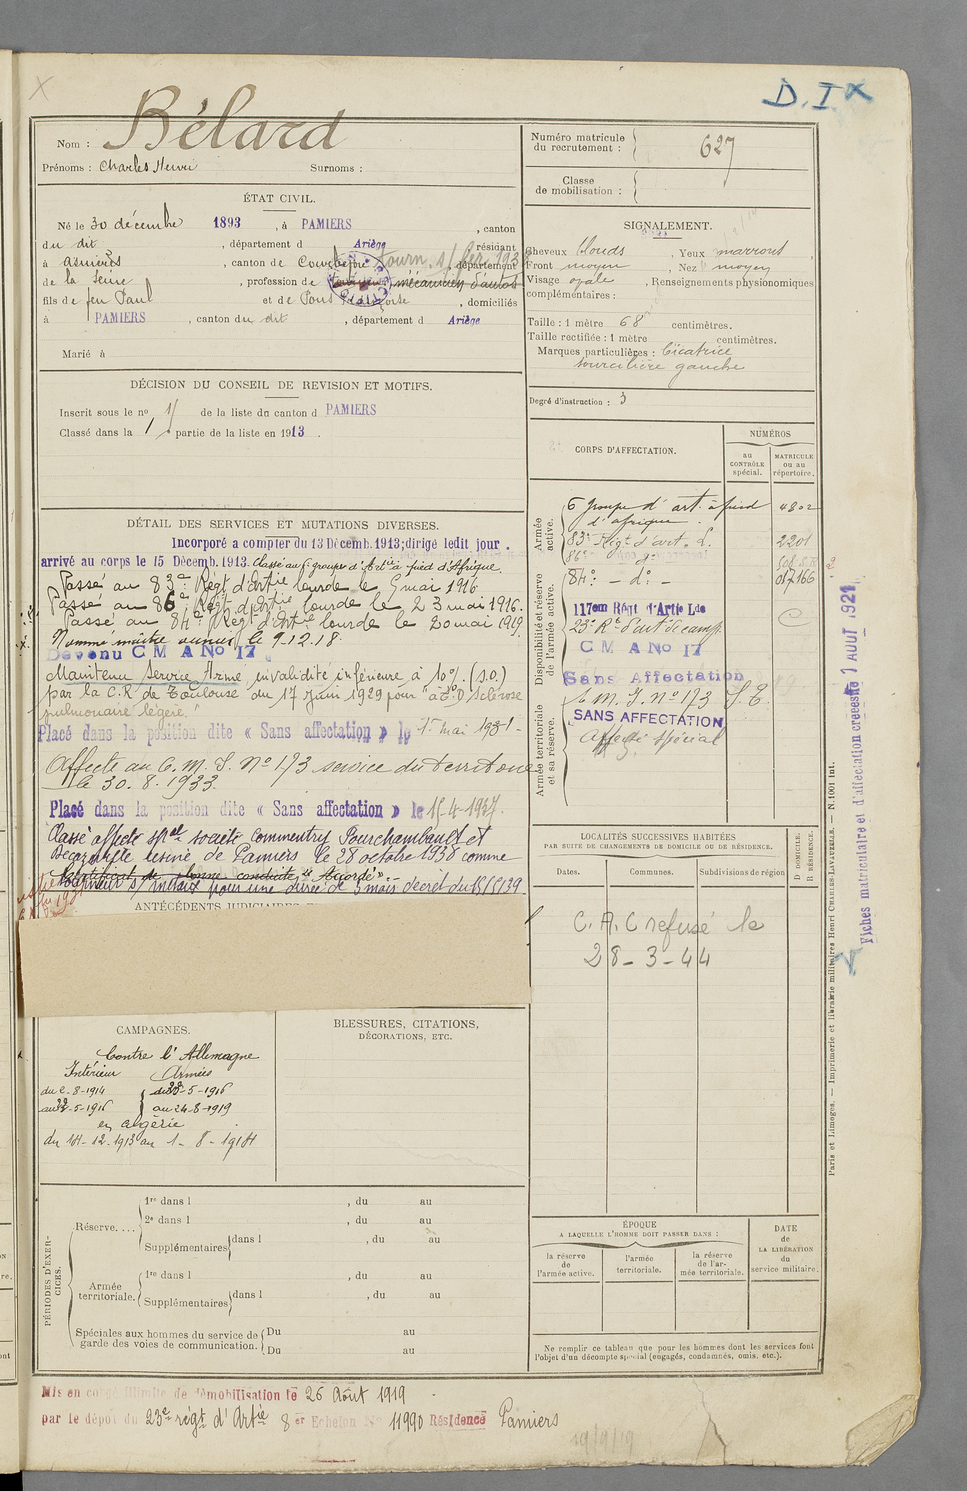 D. I x
Nom : Bélard
Prénoms : Charles Henri Surnoms :
Numéro matricule du recrutement : 627
Classe de mobilisation :
ÉTAT CIVIL.
Né le 30 décembre 1893, à PAMIERS, canton
du dit, département d Ariège, résidant
à asnières, canton de Courbevoie, département
de la Seine, profession de mécanicien d'autos
Tourn. s/ fer 193
fils de feu Paul et de Pons, domiciliés
à PAMIERS, canton du dit, département d Ariège
Marié à
SIGNALEMENT.
Cheveux blonds, Yeux marrons
Front moyen, Nez moyen
Visage ovale, Renseignements physionomiques
complémentaires :
Taille : 1 mètre 68 centimètres.
Taille rectifiée : 1 mètre centimètres.
Marques particulières : Cicatrice
sourcilière gauche
Degré d'instruction : 3
DÉCISION DU CONSEIL DE REVISION ET MOTIFS.
Inscrit sous le no 15 de la liste du canton d PAMIERS
Classé dans la 1 partie de la liste en 1913.
DÉTAIL DES SERVICES ET MUTATIONS DIVERSES.
Incorporé a compter du 13 Décemb. 1913; dirigé ledit jour.
arrivé au corps le 15 Décemb. 1913. Classé au 6 groupe d'Artie à pied d'Afrique.
Passé au 83e Régt d'Artie lourde le 9 mai 1916.
Passé au 86e Régt d'Artie lourde le 23 mai 1916.
Passé au 84e Régt d'Artie lourde le 20 mai 1919
Nommé maître ouvrier le 9.12.18.
Devenu C M A No 17
Maintenu Service Armé, invalidité inférieure à 10% (S.O.)
par la C.R. de Toulouse du 17 juin 1929 pour "Sclérose
pulmonaire légère."
Placé dans la position dite « Sans affectation » le 15 mai 1931-
Affecté au C. M. I. No 173 service du territoire
le 30. 8. 1933.
Placé dans la position dite « Sans affectation » le 15-4-1937.
Classé affecté spal société Commentry Fourchambault et
Decazeville usine de Pamiers le 28 octobre 1938 comme
Certificat de bonne conduite "Accordé".-
tourneur s/ métaux pour une durée de 3 mois décret du
ANTÉCÉDENTS JUDICIAIRES
CORPS D'AFFECTATION.
NUMÉROS
au CONTRÔLE spécial.
MATRICULE ou au répertoire.
Armée active.
6 groupe d'art. à pied 4802
d'afrique.
83e Régt d'art. L. 2201
86e - do -
84e - do - 017166
Disponibilité et réserve de l'armée active.
117em Régt d'Artie Lde
23e Rt d'art de camp.
C M A No 17
Sans Affectation
Armée territoriale et sa réserve.
C. M. I. No 173 S. E.
SANS AFFECTATION
Affecté spécial
LOCALITÉS SUCCESSIVES HABITÉES
PAR SUITE DE CHANGEMENTS DE DOMICILE OU DE RÉSIDENCE.
Dates. Communes. Subdivisions de région
D DOMICILE.
R RÉSIDENCE.
C. A. C refusé le
28 - 3 - 44
CAMPAGNES.
Contre l'Allemagne
Intérieur Armées
du 2-8-1914 du 23-5-1916
au 22-5-1916 au 24-8-1919
en algérie
du 14-12-1913 au 1-8-1914
BLESSURES, CITATIONS,
DÉCORATIONS, ETC.
PÉRIODES D'EXERCICES.
Réserve....
1re dans l , du au
2e dans l , du au
Supplémentaires dans l , du au
Armée territoriale.
1re dans l , du au
Supplémentaires dans l , du au
Spéciales aux hommes du service de garde des voies de communication.
Du au
Du au
ÉPOQUE
A LAQUELLE L'HOMME DOIT PASSER DANS :
la réserve de l'armée active.
l'armée territoriale.
la réserve de l'armée territoriale.
DATE de LA LIBÉRATION du service militaire.
Ne remplir ce tableau que pour les hommes dont les services font
l'objet d'un décompte spécial (engagés, condamnés, omis, etc.).
Mis en congé illimité de démobilisation le 26 Août 1919
par le dépôt du 23e régt d'Artie 8 er Echelon No 11990 Résidence Pamiers
19/9/19
Paris et Limoges. — Imprimerie et librairie militaires Henri CHARLES-LAVAUZELLE. — N. 1001 int.
Fiches matriculaire et d'affectation creees le 1 AOUT 1921